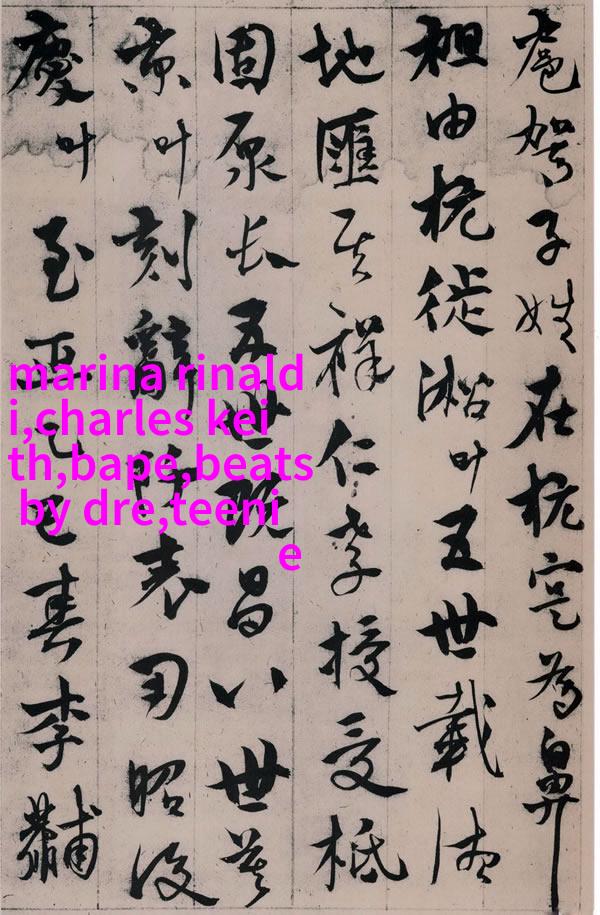 子姓在杭寔為鼻
祖由杭徙叶五世載
地匯其祥仁孝授受柢
固原长五世既昌八世
京叶刻辭阡表用昭後
慶叶至正乙巳春李黼
marina rinald
i,charles kei
th,bape,beats
by dre,teeni
e